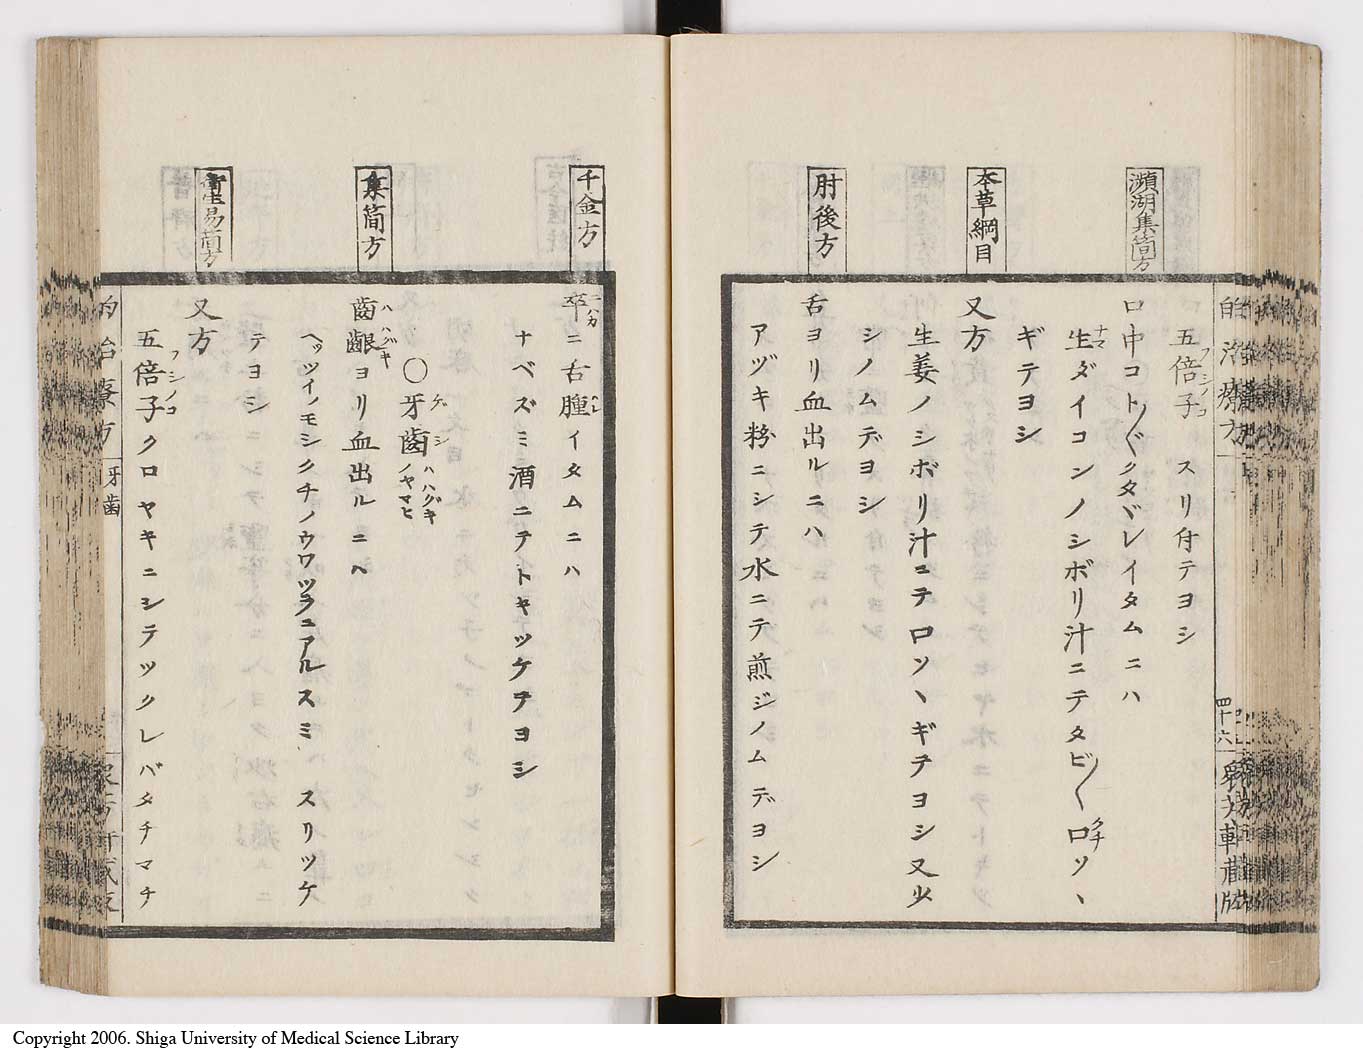 的治療方
四十六
五倍子 スリ付テヨシ
フシノコ
瀕湖集簡方
口中コト〴〵クタヾレイタムニハ
生ダイコンノシボリ汁ニテタビ〳〵口ソヽ
ナマ
クチ
ギテヨシ
本草綱目
又方
生姜ノシボリ汁ニテ口ソヽギテヨシ又少
シノムデヨシ
肘後方
舌ヨリ血出ルニハ
アヅキ粉ニシテ水ニテ煎ジノムデヨシ
千金方
卒カニ舌腫イタムニハ
ニハカ
ナベズミ酒ニテトキツケテヨシ
〇牙齒
ゲシ
ハハグキ
ノヤマヒ
集簡方
齒齦ヨリ血出ルニハ
ハハグキ
ヘッツイノモシクチノウワツラニアルスミ スリツケ
テヨシ
衛生易簡方
又方
五倍子クロヤキニシテツクレバタチマチ
フシノコ
的治療方
牙齒
Copyright 2006. Shiga University of Medical Science Library